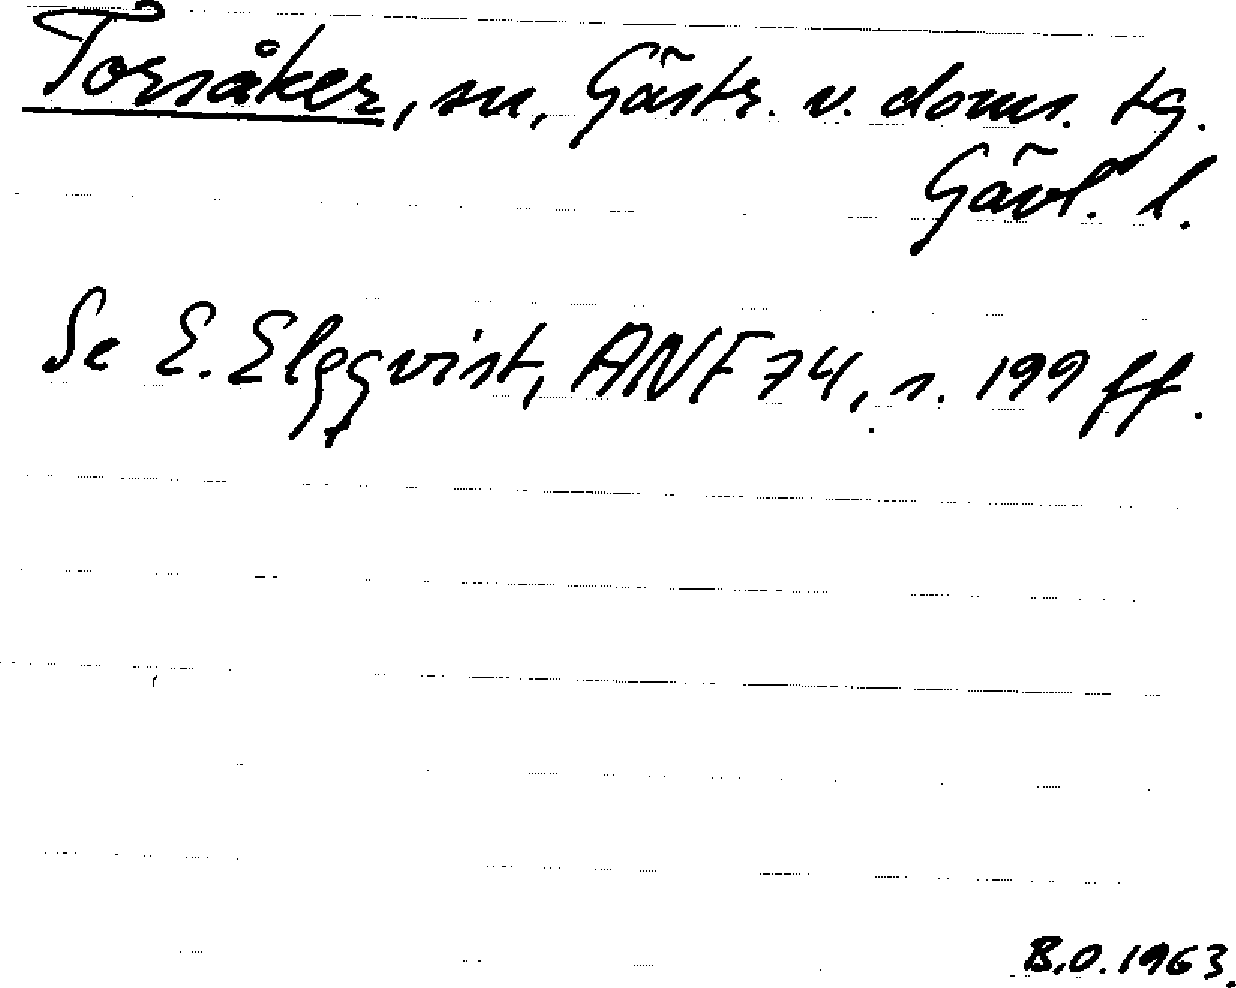 Torsåker, sn, Gästr. v. doms. tg.
Gävl. l.
Se E. Elgqvist, ANF 74, s. 199 ff.
B.O. 1963.